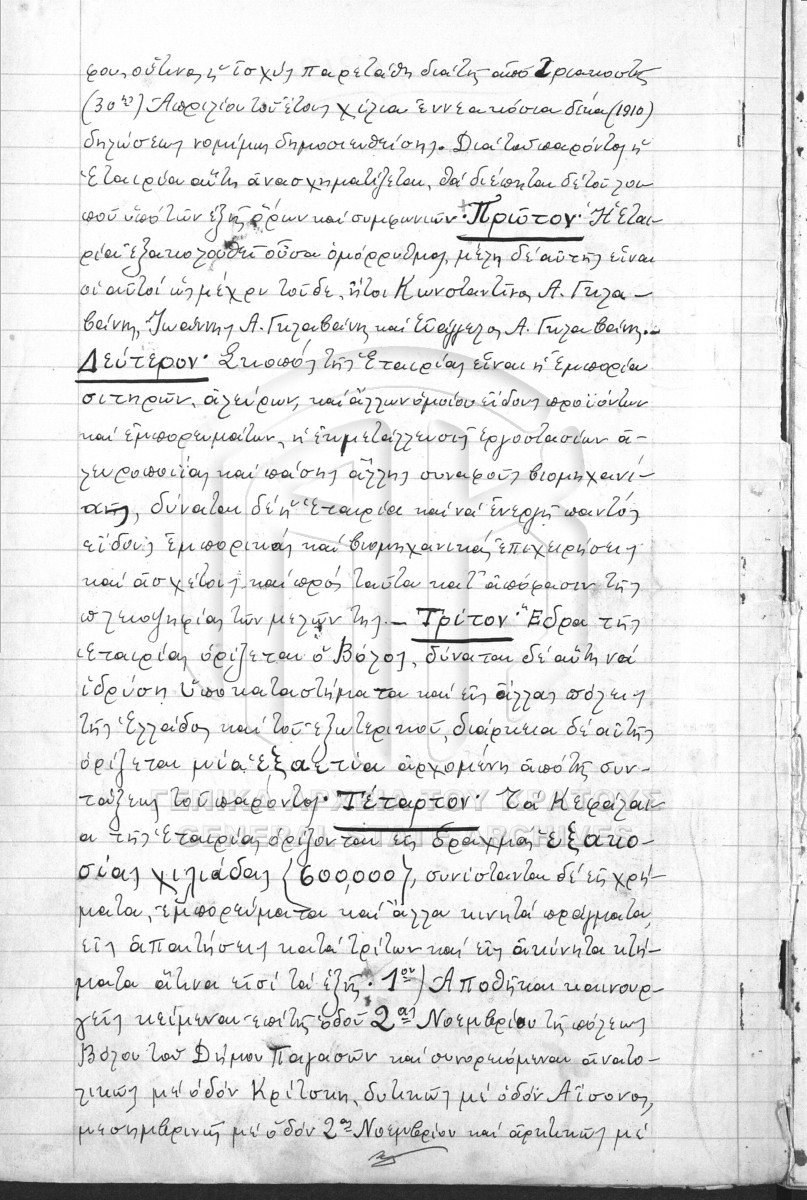 φου, οὗτινος ἡ ἰσχὺς παρετάθη διὰ τῆς ἀπὸ Τριακοστῆς
(30ης) Ἀπριλίου τοῦ ἔτους χίλια ἐννεακόσια δέκα (1910)
δηλώσεως νομίμως δημοσιευθείσης. Διὰ τοῦ παρόντος ἡ
Ἑταιρία αὕτη ἀνασχηματίζεται, θὰ διέπηται δὲ τοῦ λοι-
ποῦ ὑπὸ τῶν ἑξῆς ὅρων καὶ συμφωνιῶν· Πρῶτον· Ἡ Ἑται-
ρία ἐξακολουθεῖ οὖσα ὁμόρρυθμος, μέλη δὲ αὐτῆς εἶναι
οἱ αὐτοὶ ὡς μέχρι τοῦδε, ἤτοι Κωνσταντῖνος Α. Γκλα-
βάνης, Ἰωάννης Α. Γκλαβάνης καὶ Εὐάγγελος Α. Γκλαβάνης.-
Δεύτερον· Σκοπὸς τῆς Ἑταιρίας εἶναι ἡ ἐμπορία
σιτηρῶν, ἀλεύρων, καὶ ἄλλων ὁμοίου εἴδους προϊόντων
καὶ ἐμπορευμάτων, ἡ ἐκμετάλλευσις ἐργοστασίων ἀ-
λευροποιΐας καὶ πάσης ἄλλης συναφοῦς βιομηχανί-
ας, δύναται δὲ ἡ Ἑταιρία καὶ νὰ ἐνεργῇ παντὸς
εἴδους ἐμπορικὰς καὶ βιομηχανικὰς ἐπιχειρήσεις
καὶ ἀσχέτους καὶ πρὸς ταῦτα κατ' ἀπόφασιν τῆς
πλειοψηφίας τῶν μελῶν της.- Τρίτον· Ἕδρα τῆς
Ἑταιρίας ὁρίζεται ὁ Βόλος, δύναται δὲ αὕτη νὰ
ἱδρύσῃ ὑποκαταστήματα καὶ εἰς ἄλλας πόλεις
τῆς Ἑλλάδος καὶ τοῦ ἐξωτερικοῦ, διάρκεια δὲ αὐτῆς
ὁρίζεται μία ἑξαετία ἀρχομένη ἀπὸ τῆς συν-
τάξεως τοῦ παρόντος· Τέταρτον· Τὰ Κεφάλαι-
α τῆς Ἑταιρίας ὁρίζονται εἰς δραχμὰς ἑξακο-
σίας χιλιάδας (600,000), συνίστανται δὲ εἰς χρή-
ματα, ἐμπορεύματα καὶ ἄλλα κινητὰ πράγματα,
εἰς ἀπαιτήσεις κατὰ τρίτων καὶ εἰς ἀκίνητα κτή-
ματα ἅτινα εἰσὶ τὰ ἑξῆς· 1ον) Ἀποθῆκαι καινουρ-
γεῖς κείμεναι ἐπὶ τῆς ὁδοῦ 2ας Νοεμβρίου τῆς πόλεως
Βόλου τοῦ Δήμου Παγασῶν καὶ συνορευόμεναι ἀνατο-
λικῶς μὲ ὁδὸν Κρίτσκη, δυτικῶς μὲ ὁδὸν Αἴσονος,
μεσημβρινῶς μὲ ὁδὸν 2ας Νοεμβρίου καὶ ἀρκτικῶς μὲ
ΓΕΝΙΚΑ ΑΡΧΕΙΑ ΤΟΥ ΚΡΑΤΟΥΣ
GENERAL STATE ARCHIVES